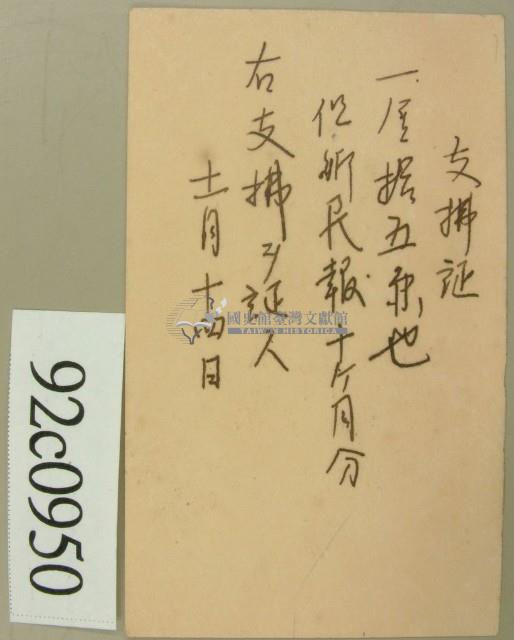 支拂証
一金拾五円也
但新民報十ケ月分
右支拂ヲ証ス
十一月十四日
國史館臺灣文獻館
TAIWAN HISTORICA
92c0950